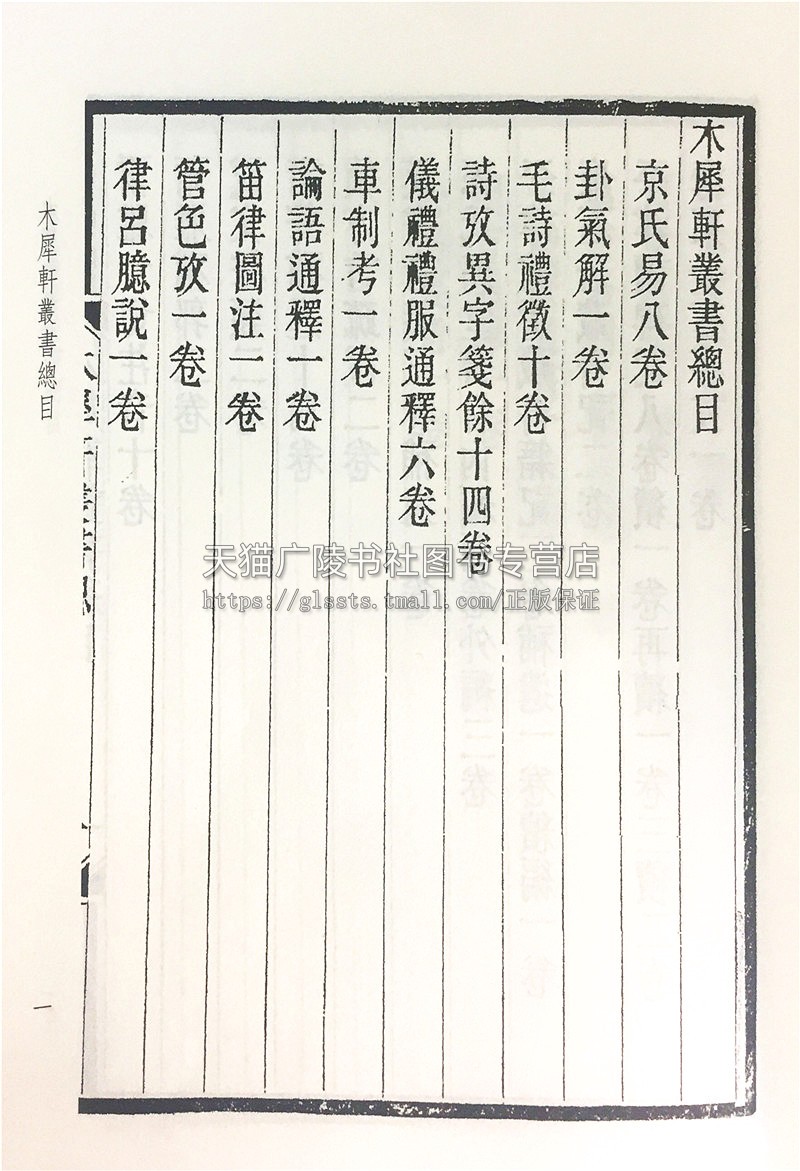 木犀軒叢書總目
京氏易八卷
卦氣解一卷
毛詩禮徵十卷
詩攷異字箋餘十四卷
儀禮禮服通釋六卷
車制考一卷
論語通釋一卷
笛律圖注一卷
管色攷一卷
律呂臆說一卷
木犀軒叢書總目
一
天猫广陵书社图书专营店
https://glssts.tmall.com/正版保证